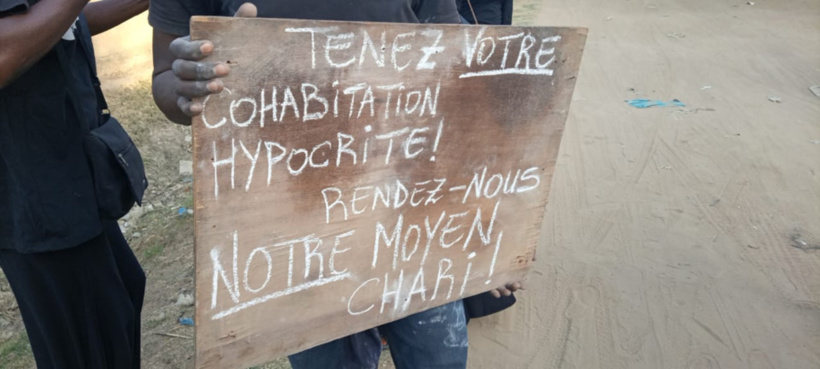 TENEZ VOTRE
COHABITATION
HYPOCRITE!
RENDEZ-NOUS
NOTRE MOYEN
CHARI!